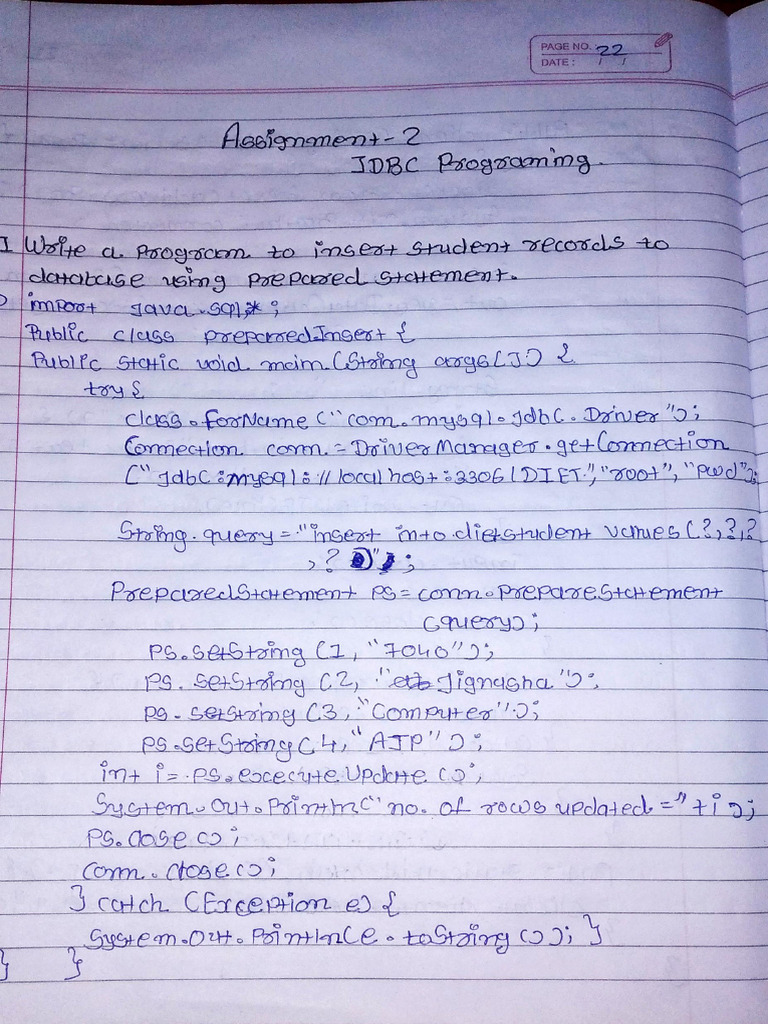 PAGE NO. 22
DATE : / /
Assignment-2
JDBC Programing.
1 Write a program to insert student records to
database using prepared statement.
import java.sql.*;
Public class preparredInsert {
Public static void main (String args[]) {
try {
class.forName ("com.mysql.Jdbc.Driver");
Connection conn.=DriverManager.getConnection
("Jdbc:mysql://localhost:3306/DIET","root","pwd");
String query="insert into dietstudent values(?,?,?
,?)";
PreparedStatement ps=conn.prepareStatement
(query);
ps.setString (1, "7040");
ps.setString (2, "Jignasha");
ps.setString (3, "Computer");
ps.setString(4, "AJP");
int i= ps.excecuteUpdate ();
System.out.println("no. of rows updated ="+i);
Ps.close ();
Conn.close();
} catch (Exception e) {
System.out.println(e.toString()); }
} }